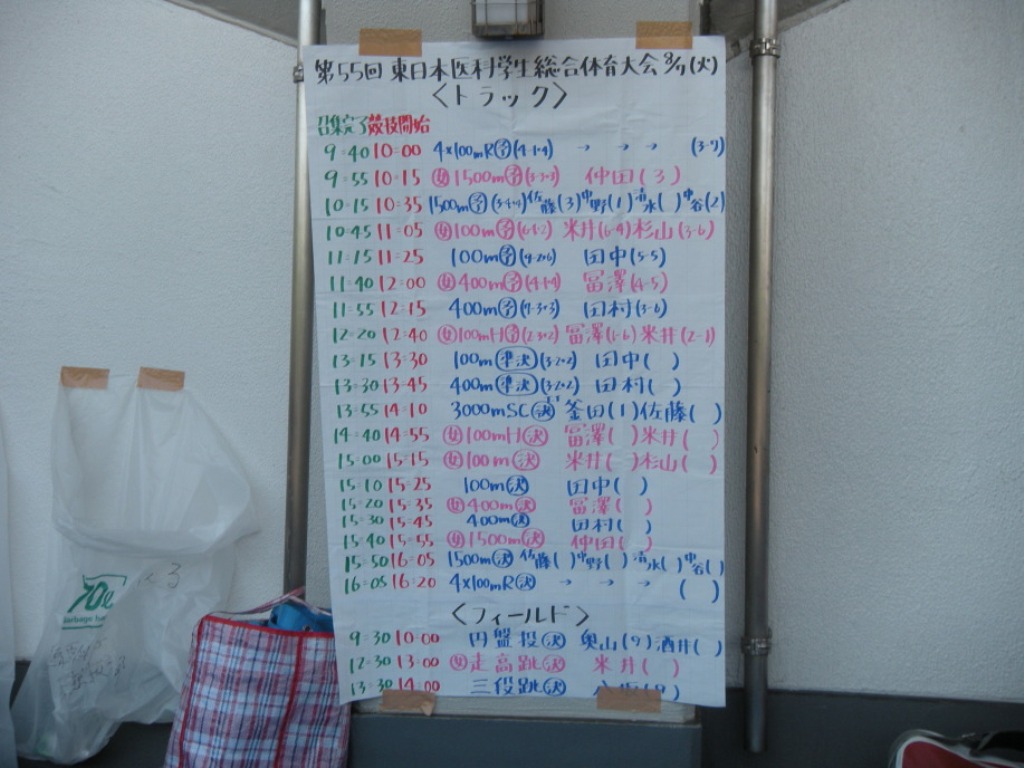 第55回 東日本医科学生総合体育大会 8/7(火)
<トラック>
召集完了 競技開始
9:40 10:00 4×100mR予(4-1+4) → → → (3-7)
9:55 10:15 女1500m予(3-3+3) 仲田(3)
10:15 10:35 1500m予(3-4+4) 佐藤(3) 中野(1) 清水( ) 中谷(2)
10:45 11:05 女100m予(6-1+2) 米井(6-4) 杉山(3-6)
11:15 11:25 100m予(9-2+6) 田中(5-5)
11:40 12:00 女400m予(4-1+4) 冨澤(4-5)
11:55 12:15 400m予(7-3+3) 田村(3-6)
12:20 12:40 女100mH予(2-3+2) 冨澤(1-6) 米井(2-1)
13:15 13:30 100m準決(3-2+2) 田中( )
13:30 13:45 400m準決(3-2+2) 田村( )
13:55 14:10 3000mSC決 釜田(1) 佐藤( )
14:40 14:55 女100mH決 冨澤( ) 米井( )
15:00 15:15 女100m決 米井( ) 杉山( )
15:10 15:25 100m決 田中( )
15:20 15:35 女400m決 冨澤( )
15:30 15:45 400m決 田村( )
15:40 15:55 女1500m決 仲田( )
15:50 16:05 1500m決 佐藤( ) 中野( ) 清水( ) 中谷( )
16:05 16:20 4×100mR決 → → → ( )
<フィールド>
9:30 10:00 円盤投決 奥山(9) 酒井( )
12:30 13:00 女走高跳決 米井( )
13:30 14:00 三段跳決
70ℓ
garbage bag
×3